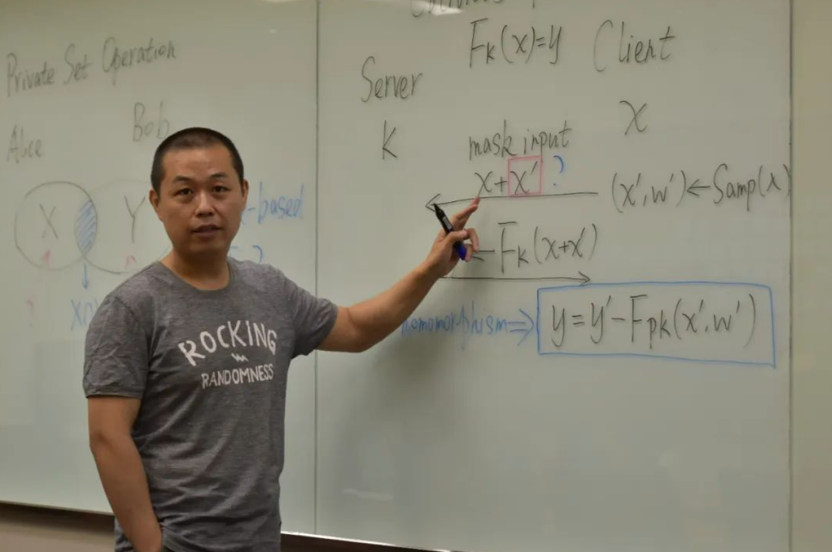 Private Set Operation
Alice
Bob
X
Y
-based
?
?
F_K(x)=y
Server
Client
K
x
mask input
x+x' ?
(x',w')←Samp(λ)
F_K(x+x')
homomorphism⇒
y=y'-F_pk(x',w')
ROCKING
RANDOMNESS